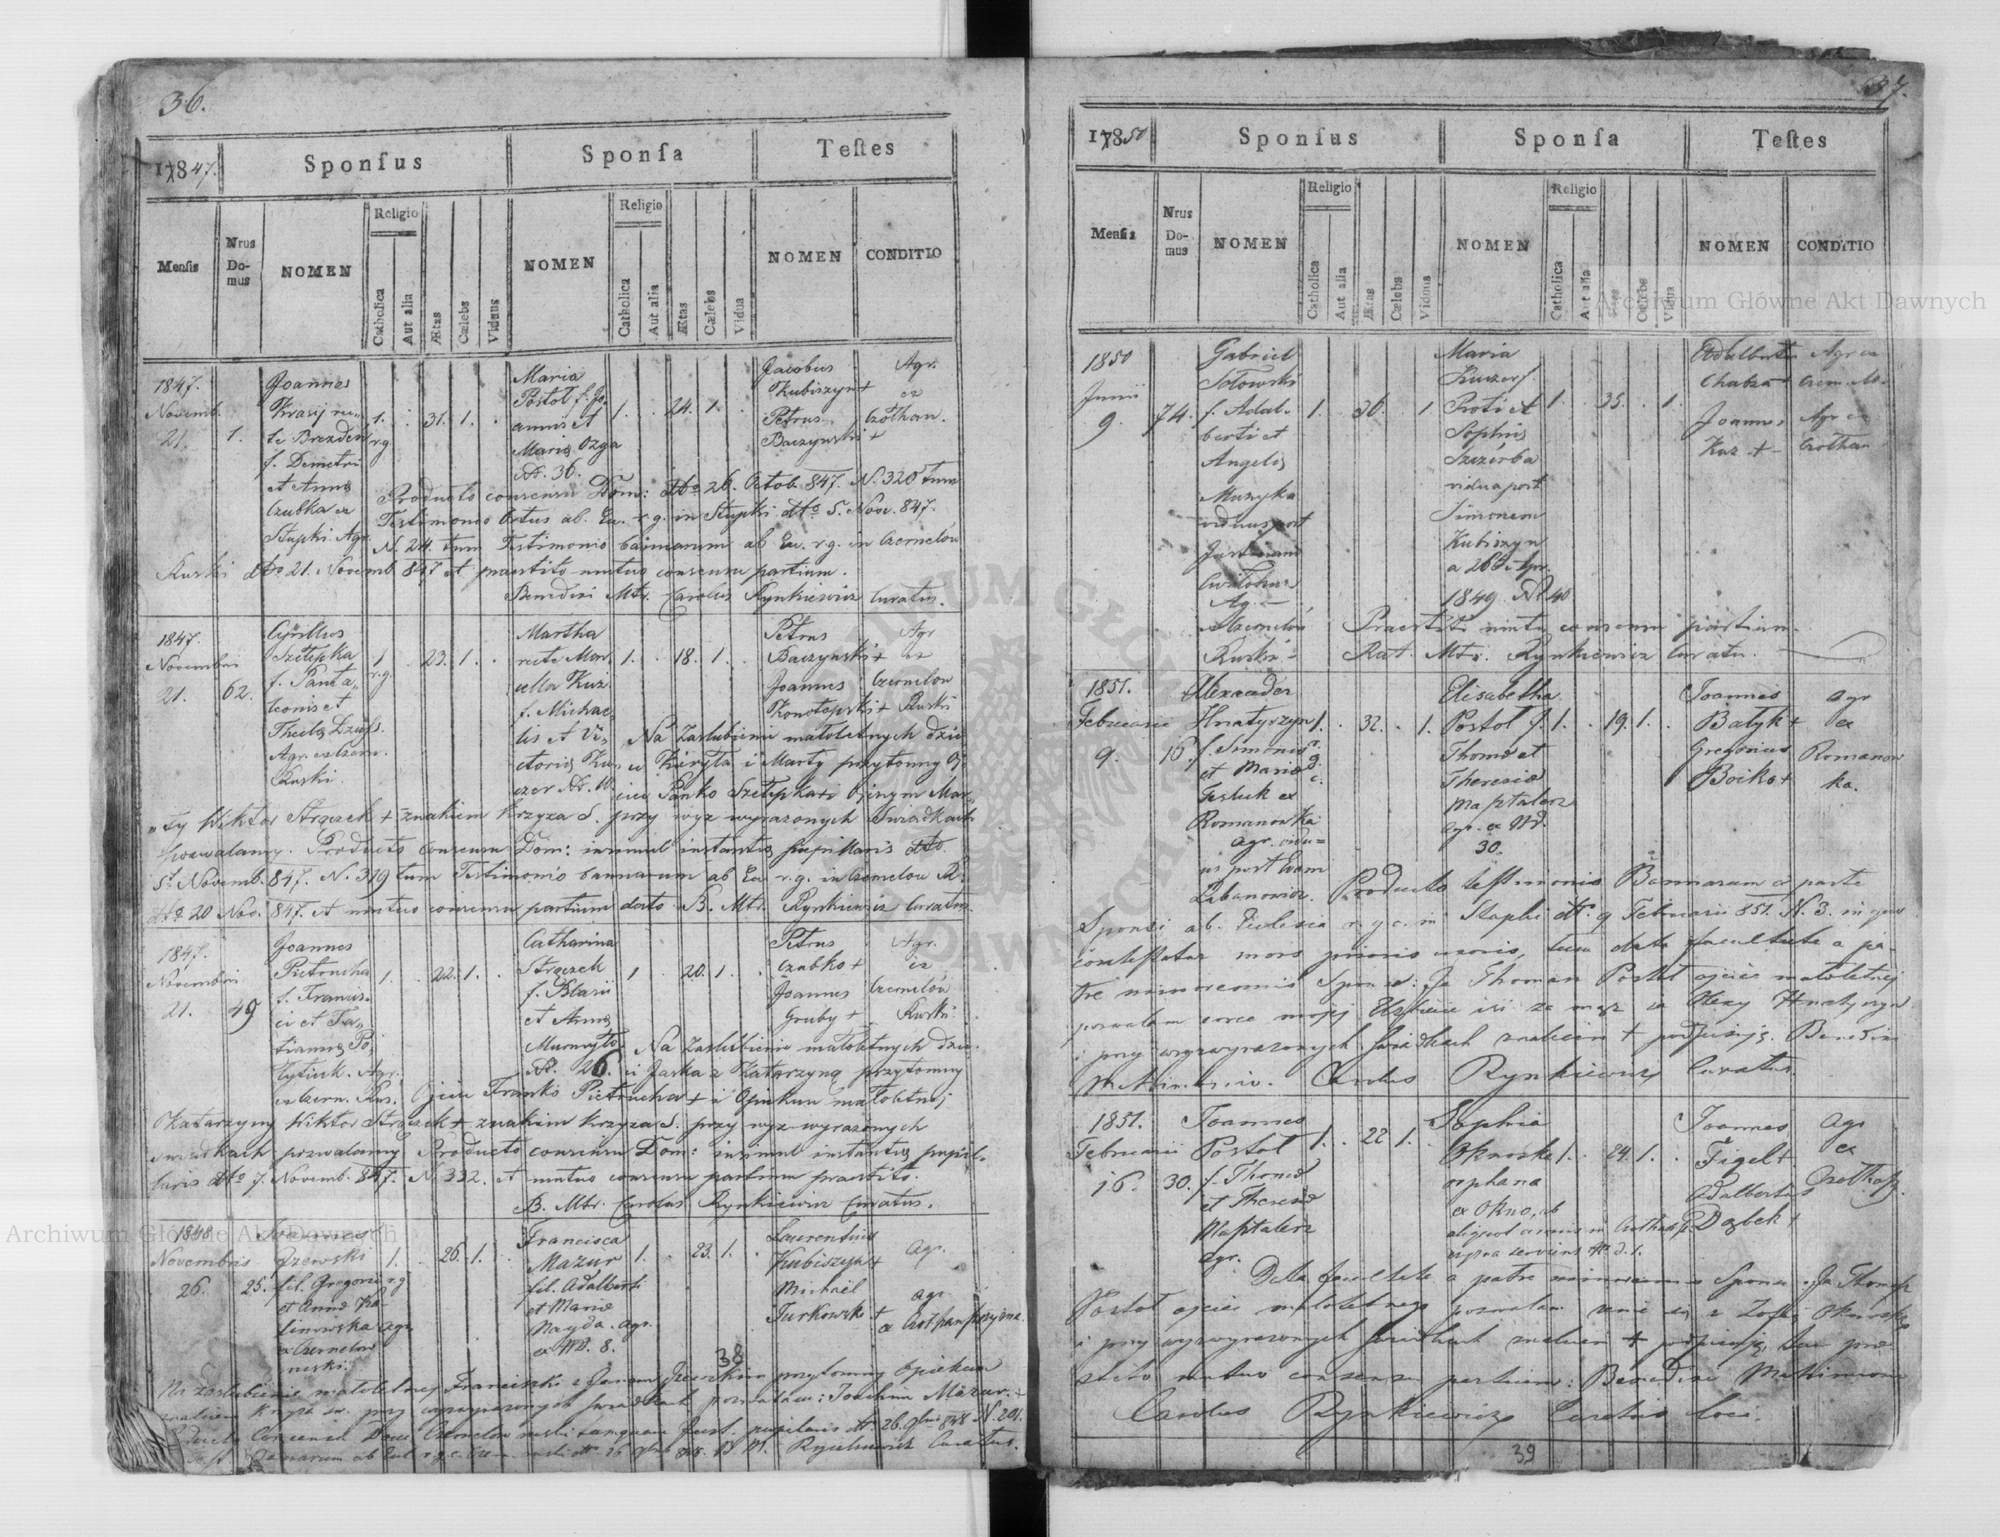 36.
1847.
Sponſus
Sponſa
Teſtes
Menſis
Nrus Do-mus
NOMEN
Religio
Catholica
Aut alia
Ætas
Cælebs
Viduus
NOMEN
Religio
Catholica
Aut alia
Ætas
Cælebs
Vidua
NOMEN
CONDITIO
1847.
Novemb.
21.
1.
Joannes
f. Demetri
et Anna
Czubka ex
Stupki Agr.
1.
r.g.
31. 1.
Maria
Postol f. Jo-
annis et
Maria Ozga
Nr. 36.
1. 24. 1.
Jacobus
Kubiszyn +
Petrus
Baczynski +
Agr.
ex
Czolhan.
Producto consensu Dom: dto 26. Octob. 847. N. 320 tum
Testimonio Ortus ab Ecc. r.g. in Stupki dto 5. Nov. 847.
N. 24. tum Testimonio bannorum ab Ecc. r.g. in Czernelow
Ruski dto 21. Novemb 847 et praestito mutuo consensu partium.
Benedixi Mtr. Carolus Rynkiewicz Curatus.
1847.
Novembris
21.
62.
Cyrillus
Szelepka
f. Panta-
leonis et
Agr. ex Czern.
Ruski.
1.
r.g.
23. 1.
Martha
recte Mar-
cella Kuz
f. Michae-
lis et Vi-
ctoria Ku-
czer
1. 18. 1.
Petrus
Baczynski +
Joannes
Konotopski +
Agr
ex
Czernelow
Ruski
Na Zaslubienie maloletnych dzie
ci Kiryla i Marty przytomny Oj-
ciec Panko Szelepka + i Ojczym Mar-
ty Wiktor Strączek + znakiem krzyza S. przy wyz wyrazonych Swiadkach
pozwalamy. Producto consensu Dom: insimul instantia pupillaris dto.
5. Novemb. 847. N. 319 tum Testimonio bannorum ab Ecc. r.g. in Czernelow R.
dto 20 Nov. 847. et mutuo consensu partium dato. B. Mtr. Rynkiewicz Curatus.
1847.
Novembris
21.
49
Joannes
Pietrucha
f. Francis-
ci et Ta-
tianna Po-
Agr.
ex Czern. Rus.
1. 22. 1.
Catharina
Strączek
f. Blasii
et Anna
Nr. 26.
1 20. 1.
Petrus
Czabko +
Joannes
Gruby +
Agr.
ex
Czernelow
Ruski.
Na Zaslubienie maloletnych dzie-
ci Jaska z Katarzyną przytomny
Ojciec Franko Pietrucha + i Opiekun maloletniej
Katarzyny Wiktor Strączek + znakiem krzyza S. przy wyz wyrazonych
Swiadkach pozwalamy Producto consensu Dom: insimul instantia pupil-
laris dto 7. Novemb. 847. N. 332. et mutuo consensu partium praestito.
B. Mtr. Carolus Rynkiewicz Curatus.
1848
Novembris
26.
25.
Joannes
fil. Gregorii
et Anna Ka-
linowska agr.
ex Czernelow
ruski.
1. r.g.
26. 1.
Francisca
Mazur
fil. Adalberti
et Maria
Nayda. agr.
ex ND. 8.
1. 23. 1.
Laurentius
Kubiszyn +
Michael
Turkowski +
Agr.
agr.
38
Na zaslubienie maloletniej Franciszki z Janem przytomny Opiekun
znakiem krzyza sw. przy wyzwyrazonych swiadkach pozwalam: Joachim Mazur. +
Rynkiewicz Curatus.
37.
1850
Sponſus
Sponſa
Teſtes
Menſis
Nrus Do-mus
NOMEN
Religio
Catholica
Aut alia
Ætas
Cælebs
Viduus
NOMEN
Religio
Catholica
Aut alia
Ætas
Cælebs
Vidua
NOMEN
CONDITIO
1850
Junii
9.
74.
Gabriel
Sotowski
f. Adal-
berti et
Angela
Muzyka
viduus post
Ag.
Czernelow
Ruski
1. 36. 1
Maria
Kuczer f.
Proti et
Sophia
Szczerba
vidua post
Simonem
Kubiszyn
a 26 Apr.
1849 Nr 40
1. 35. 1.
Adalbertus
Chabza +
Joannes
Kuz +
Agr ex
Czern. R.
Agr ex
Czolhan
Praestito mutuo consensu partium.
Rat. Mtr. Rynkiewicz Curatus.
1851.
Februarii
9.
16.
Alexander
Hnatyszyn
f. Simonis
et Maria
ex
Romanowka
agr. vidu-
us post Evam
Labanowicz.
1. r. g. c.
32. 1.
Elisabetha
Postol f.
Thoma et
Theresia
Masztalerz
agr. ex Nd.
30.
1. 19. 1.
Joannes
Batyk +
Gregorius
Boiko +
agr
ex
Romanow
ka.
Producto testimonio Bannorum ex parte
Sponsi ab Ecclesia r. g. c. in Stupki dto. 9 Februarii 851. N. 3. in quo
contestatur mors prioris uxoris, tum data facultate a pa-
tre minorennis Sponsa: Ja Thoman Postol ojciec maloletniej
pozwalam corce mojej Elzbiecie isc za mąz za Olexy Hnatyszyn
i przy wyzwyrazonych swiadkach znakiem + podpisuję. Benedixi
Matrimonio. Carolus Rynkiewicz Curatus.
1851.
Februarii
16.
30.
Joannes
Postol
f. Thoma
et Theresia
Masztalerz
agr.
1. 22 1.
Sophia
Oknoska
orphana
ex Okno, ab
1. 24. 1.
Joannes
Figel +
Adalbertus
Dąbek +
agr
ex
Data facultate a patre minorennis Sponsi. Ja Thomas
Postol ojciec maloletnego pozwalam z Zofią Oknoską
i przy wyzwyrazonych swiadkach znakiem + podpisuję, tum prae
stito mutuo consensu partium: Benedixi Matrimonio
Carolus Rynkiewicz Curatus loci.
39
Archiwum Główne Akt Dawnych
Archiwum Główne Akt Dawnych